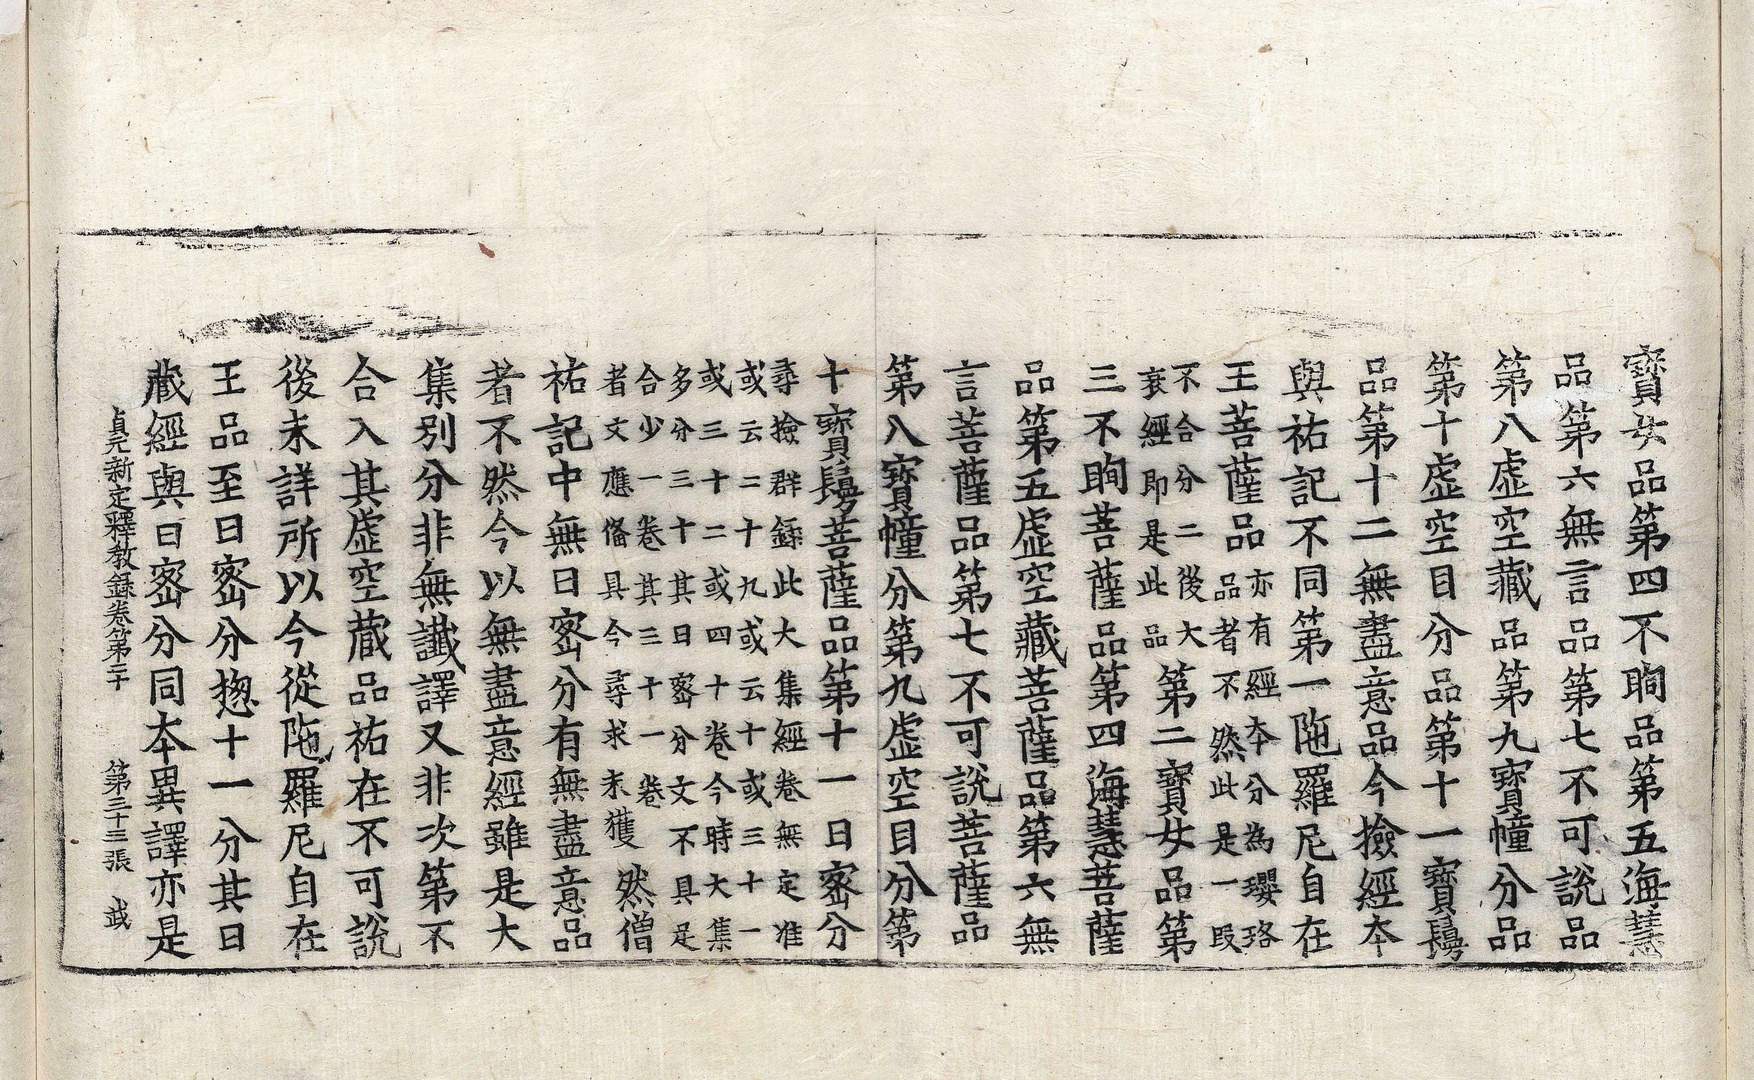 寳女品第四不眴品第五海慧
品第六無言品第七不可說品
第八虛空藏品第九寳幢分品
第十虛空目分品第十一寳髻
品第十二無盡意品今撿經本
與祐記不同第一陁羅尼自在
王菩薩品亦有經本分為瓔珞
品者不然此是一段
不合分二後大
衰經即是此品第二寳女品第
三不眴菩薩品第四海慧菩薩
品第五虛空藏菩薩品第六無
言菩薩品第七不可說菩薩品
第八寳幢分第九虛空目分第
十寳髻菩薩品第十一日密分
尋撿群録此大集經卷無定准
或云二十九或云十或三十一
或三十二或四十卷今時大集
多分三十其日密分文不具足
合少一卷其三十一卷
者文應俻具今尋求未獲然僧
祐記中無日密分有無盡意品
者不然今以無盡意經雖是大
集別分非無讖譯又非次第不
合入其虛空藏品祐在不可說
後未詳所以今從陁羅尼自在
王品至日密分揔十一分其日
藏經與日密分同本異譯亦是
貞元新定釋教録卷第二十 第三十三張